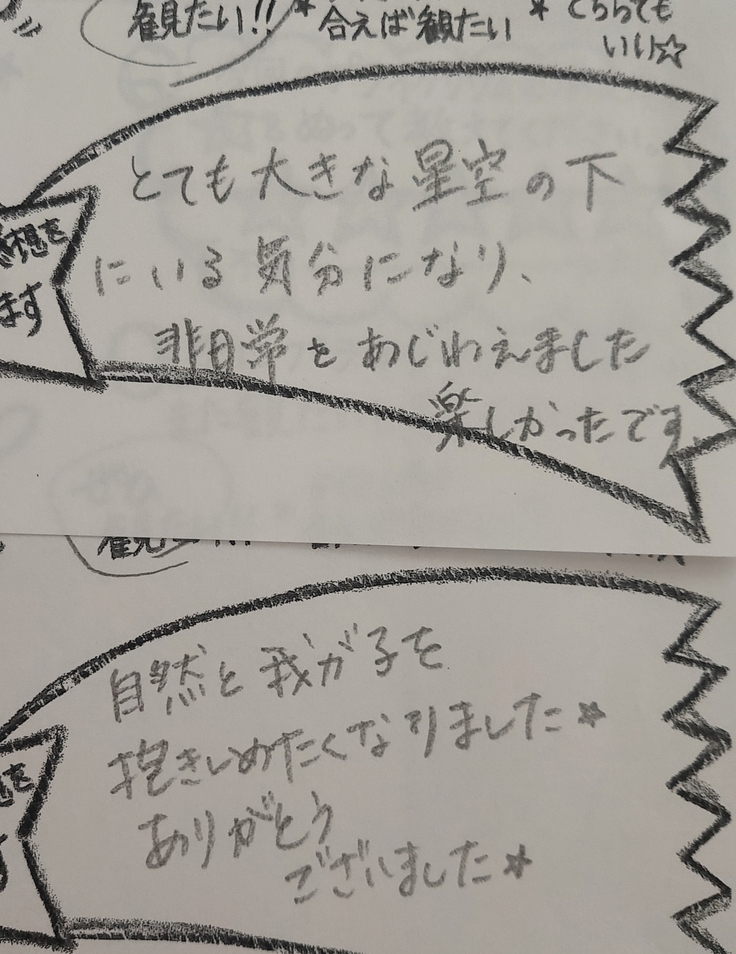 観たい!! * 合えば観たい * どちらでも
いい☆
感想を
ます
とても大きな星空の下
にいる気分になり、
非日常をあじわえました
楽しかったです。
自然と我が子を
抱きしめたくなりました★
ありがとう
ございました★